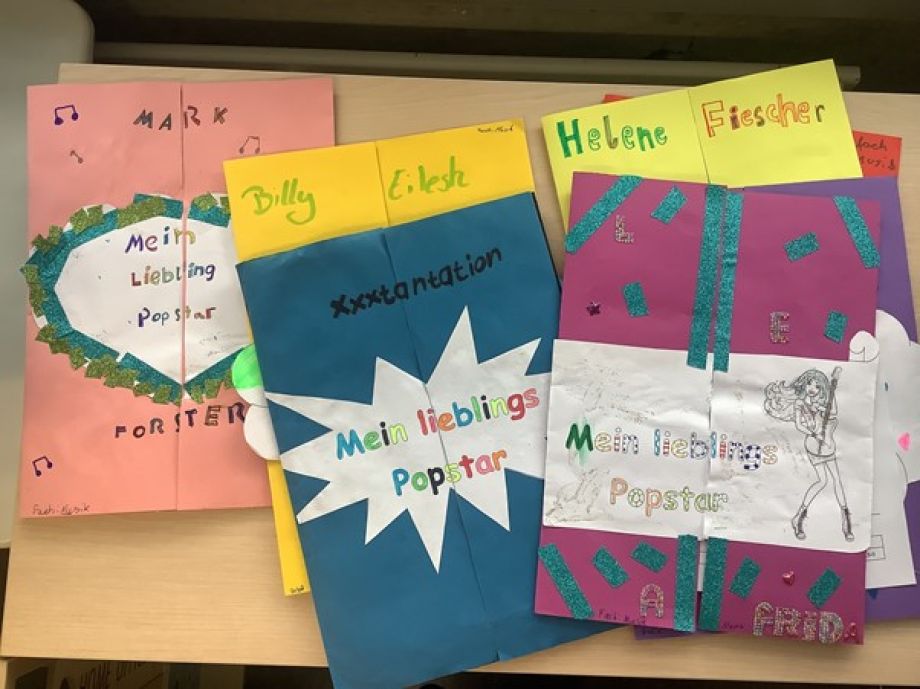 MARK
Mein
Liebling
Popstar
FORSTER
Fach: Musik
Billy Eilesh
xxxtantation
Mein lieblings
Popstar
Helene Fiescher
L
E
Mein lieblings
Popstar
A
FRIDA